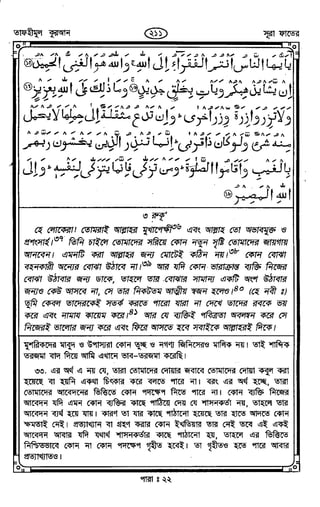 তাফহীমুল কুরআন
২১১
সূরা ফাতের
يٰٓاَيُّهَا النَّاسُ اَنْتُمُ الْفُقَرَآءُ اِلَى اللهِ وَاللهُ هُوَ الْغَنِىُّ الْحَمِيْدُ ۝
اِنْ يَّشَاْ يُذْهِبْكُمْ وَيَاْتِ بِخَلْقٍ جَدِيْدٍ ۝ وَمَا ذٰلِكَ عَلَى اللهِ بِعَزِيْزٍ ۝
وَلَا تَزِرُ وَازِرَةٌ وِّزْرَ اُخْرٰى وَاِنْ تَدْعُ مُثْقَلَةٌ اِلٰى حِمْلِهَا لَا يُحْمَلْ
مِنْهُ شَىْءٌ وَّلَوْ كَانَ ذَا قُرْبٰى اِنَّمَا تُنْذِرُ الَّذِيْنَ يَخْشَوْنَ رَبَّهُمْ
بِالْغَيْبِ وَاَقَامُوا الصَّلٰوةَ وَمَنْ تَزَكّٰى فَاِنَّمَا يَتَزَكّٰى لِنَفْسِهٖ وَاِلَى
اللهِ الْمَصِيْرُ ۝
৩ রুকূ'
হে লোকেরা! তোমরাই আল্লাহর মুখাপেক্ষী৩৬ এবং আল্লাহ তো অভাবমুক্ত ও
প্রশংসার্হ।৩৭ তিনি চাইলে তোমাদের সরিয়ে কোন নতুন সৃষ্টি তোমাদের জায়গায়
আনবেন। এমনটি করা আল্লাহর জন্য মোটেই কঠিন নয়।৩৮ কোন বোঝা
বহনকারী অন্যের বোঝা উঠাবে না।৩৯ আর যদি কোন ভারাক্রান্ত ব্যক্তি নিজের
বোঝা উঠাবার জন্য ডাকে, তাহলে তার বোঝার সামান্য একটি অংশ উঠাবার
জন্যও কেউ আসবে না, সে তার নিকটতম আত্মীয় স্বজন হলেও।৪০ (হে নবী!)
তুমি কেবল তাদেরকেই সতর্ক করতে পারো যারা না দেখে তাদের রবকে ভয়
করে এবং নামায কায়েম করে।৪১ আর যে ব্যক্তিই পবিত্রতা অবলম্বন করে সে
নিজেরই ভালোর জন্য করে এবং ফিরে আসতে হবে সবাইকে আল্লাহরই দিকে।
মুশরিকদের মাবুদ ও উপাস্যরা কোন তুচ্ছ ও নগণ্য জিনিসেরও মালিক নয়। তাই শাব্দিক
তরজমা বাদ দিয়ে আমি এখানে ভাব-তরজমা করেছি।
৩৩. এর অর্থ এ নয় যে, তারা তোমাদের দোয়ার জবাবে তোমাদের দোয়া কবুল করা
হয়েছে বা হয়নি একথা চিৎকার করে বলতে পারে না। বরং এর অর্থ হচ্ছে, তারা
তোমাদের আবেদনের ভিত্তিতে কোন পদক্ষেপ নিতে পারে না। কোন ব্যক্তি নিজের
আবেদন যদি এমন কোন ব্যক্তির কাছে পাঠিয়ে দেয় যে শাসনকর্তা নয়, তাহলে তার
আবেদন ব্যর্থ হয়ে যায়। কারণ তা যার কাছে পাঠানো হয়েছে তার হাতে আদতে কোন
ক্ষমতাই নেই। প্রত্যাখ্যান বা গ্রহণ করার কোন ইখতিয়ার তার নেই তবে এই একই
আবেদন আবার যদি যথার্থ শাসনকর্তার কাছে পাঠানো হয়, তাহলে এর ভিত্তিতে
নিশ্চিতভাবে কোন না কোন পদক্ষেপ গৃহীত হবেই। তা গৃহীতও হতে পারে আবার
প্রত্যাখ্যাতও।
পারা : ২২